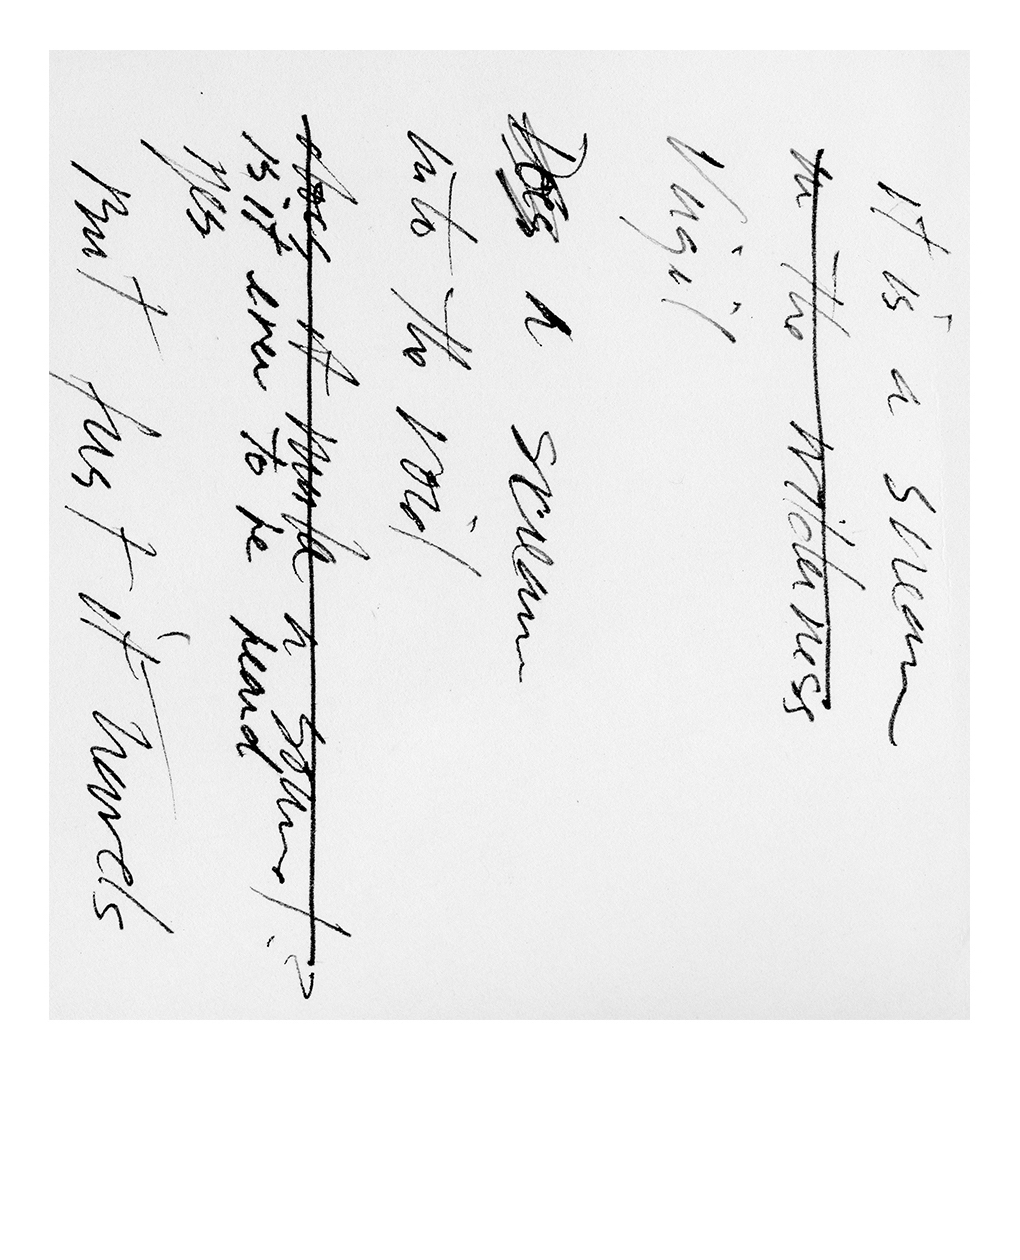 It is a scream
in the wilderness
Virgil
Does a scream
into the void
does it make a sound?
is it ever to be heard
yes
But first it travels